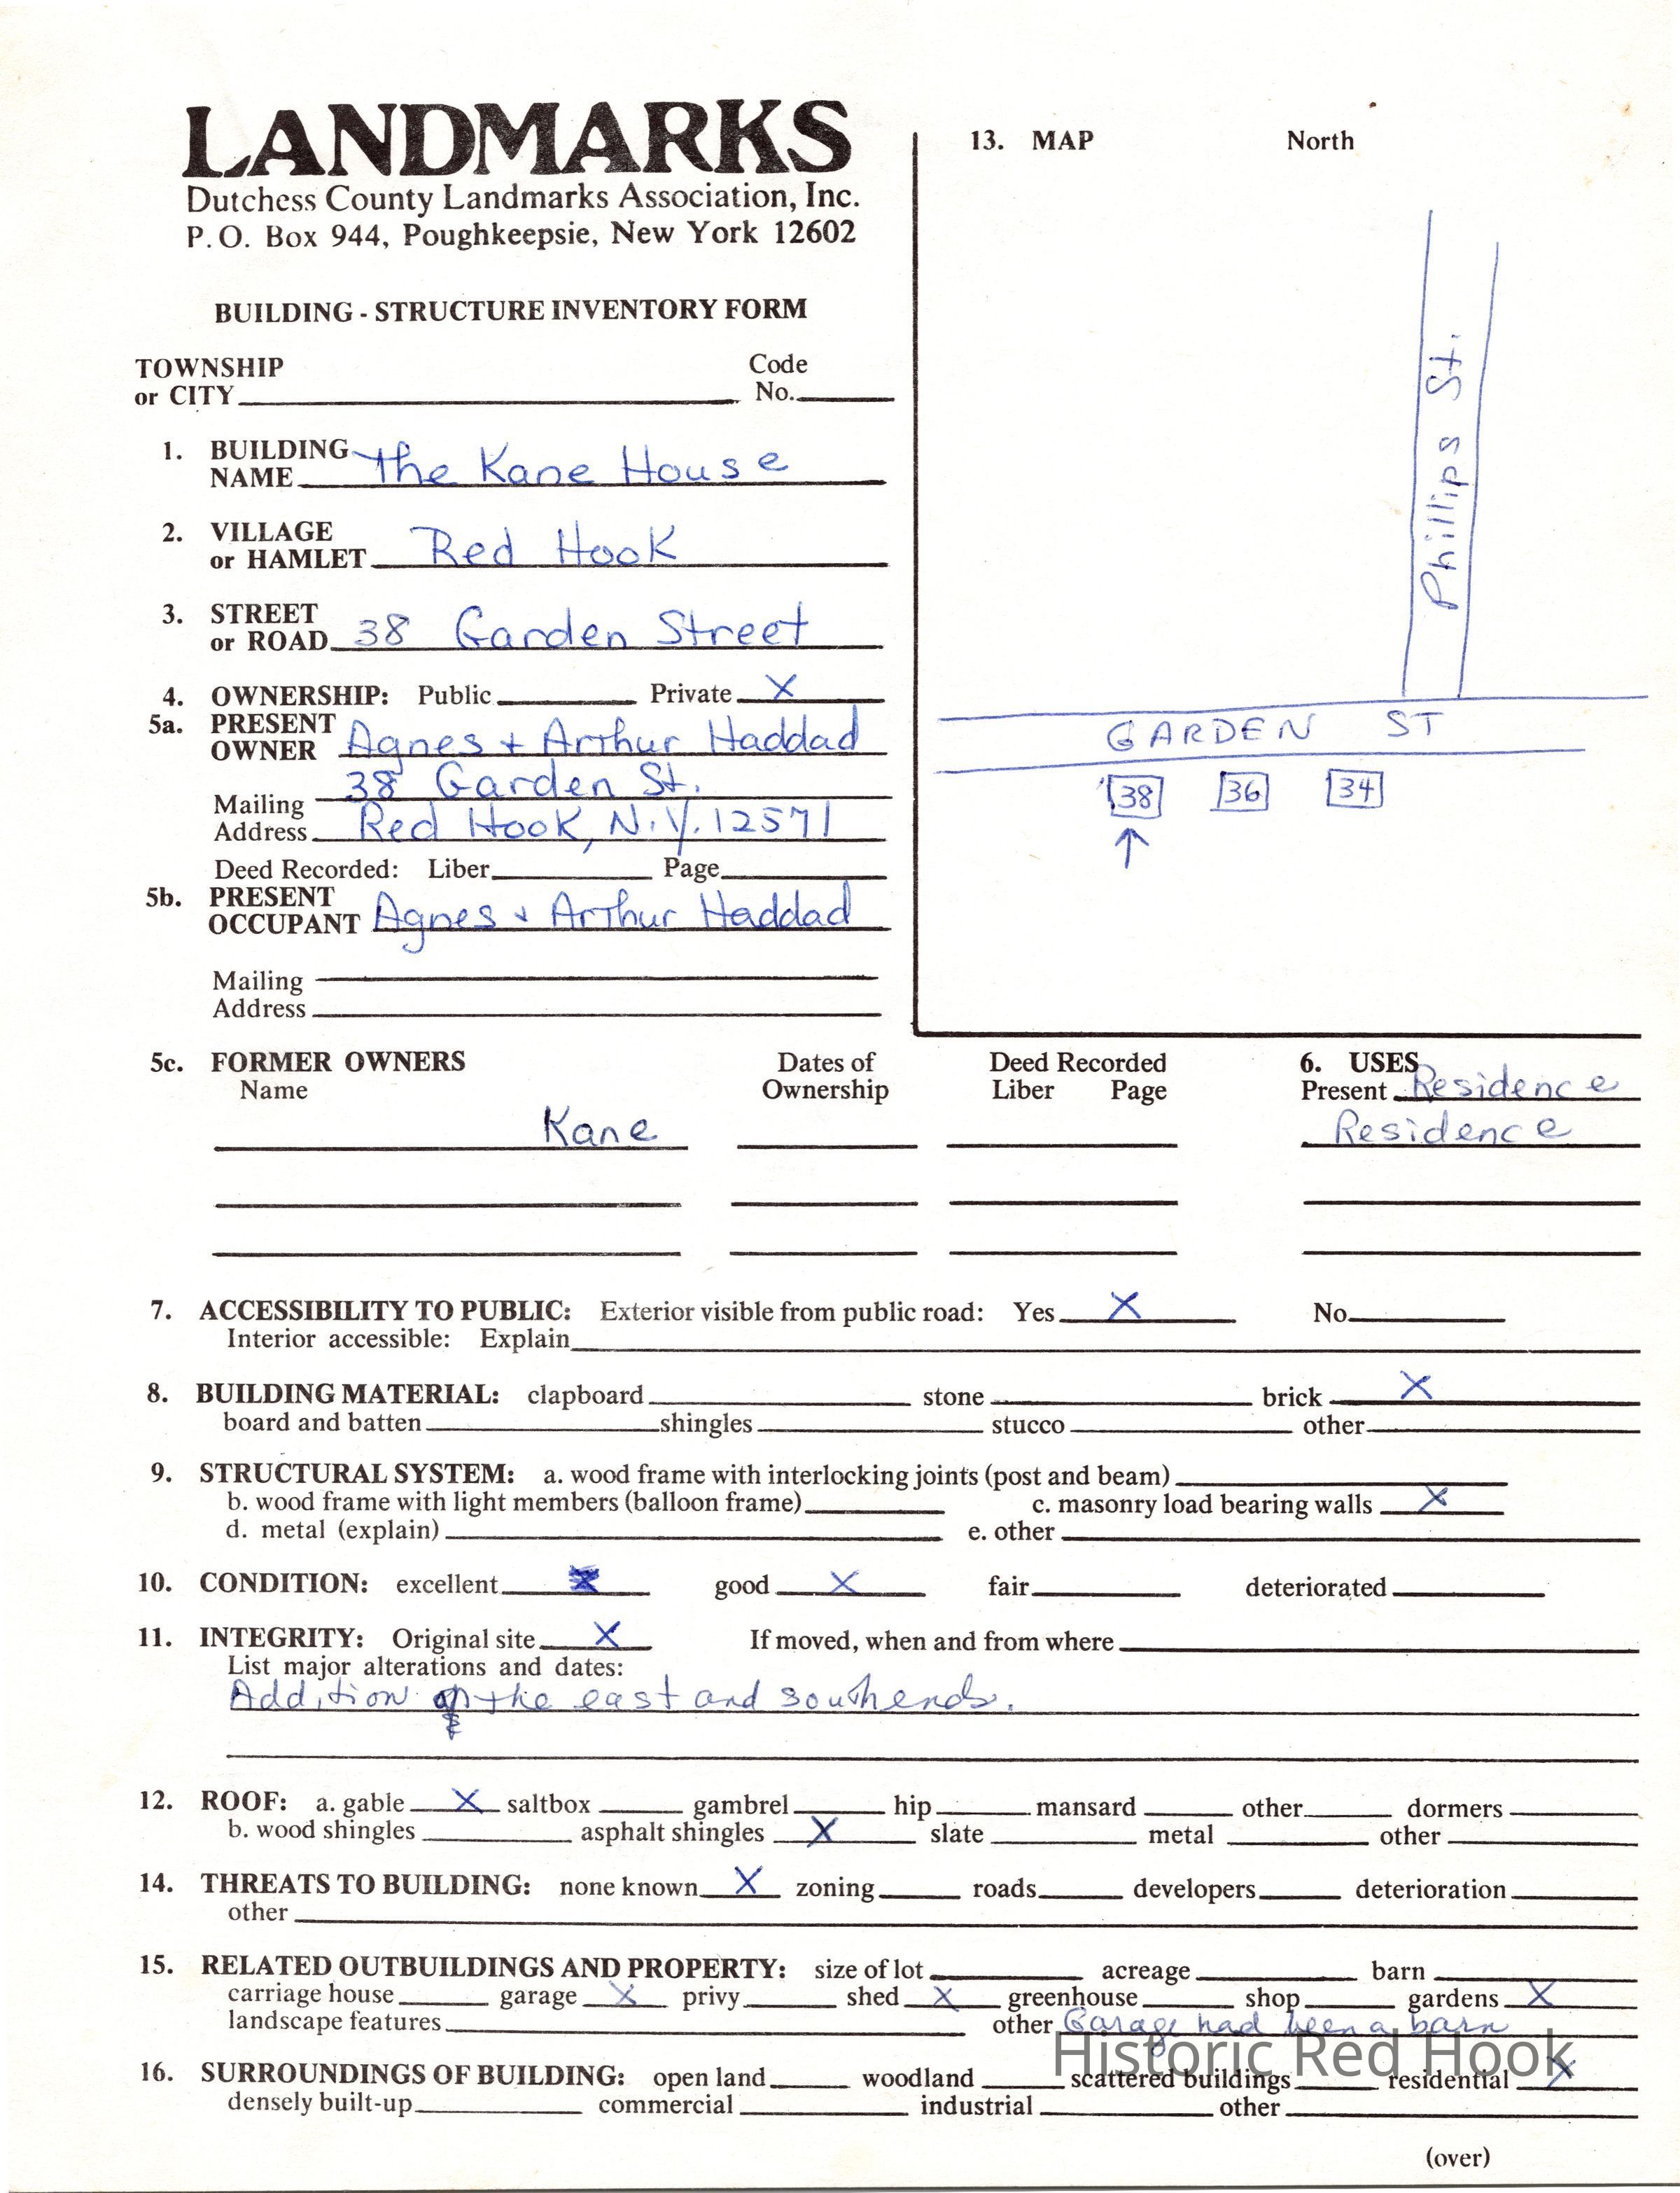 LANDMARKS
Dutchess County Landmarks Association, Inc.
P.O. Box 944, Poughkeepsie, New York 12602
BUILDING - STRUCTURE INVENTORY FORM
TOWNSHIP Code
or CITY No.
1. BUILDING
NAME The Kane House
2. VILLAGE
or HAMLET Red Hook
3. STREET
or ROAD 38 Garden Street
4. OWNERSHIP: Public Private X
5a. PRESENT
OWNER Agnes + Arthur Haddad
38 Garden St.
Mailing
Address Red Hook, N.Y. 12571
Deed Recorded: Liber Page
5b. PRESENT
OCCUPANT Agnes + Arthur Haddad
Mailing
Address
13. MAP North
Phillips St.
GARDEN ST
38 36 34
5c. FORMER OWNERS Dates of Deed Recorded 6. USES
Name Ownership Liber Page Present Residence
Kane Residence
7. ACCESSIBILITY TO PUBLIC: Exterior visible from public road: Yes X No
Interior accessible: Explain
8. BUILDING MATERIAL: clapboard stone brick X
board and batten shingles stucco other
9. STRUCTURAL SYSTEM: a. wood frame with interlocking joints (post and beam)
b. wood frame with light members (balloon frame) c. masonry load bearing walls X
d. metal (explain) e. other
10. CONDITION: excellent good X fair deteriorated
11. INTEGRITY: Original site X If moved, when and from where
List major alterations and dates:
Addition the east and south ends.
12. ROOF: a. gable X saltbox gambrel hip mansard other dormers
b. wood shingles asphalt shingles X slate metal other
14. THREATS TO BUILDING: none known X zoning roads developers deterioration
other
15. RELATED OUTBUILDINGS AND PROPERTY: size of lot acreage barn
carriage house garage X privy shed X greenhouse shop gardens X
landscape features other Garage had been a barn
Historic Red Hook
16. SURROUNDINGS OF BUILDING: open land woodland scattered buildings residential X
densely built-up commercial industrial other
(over)